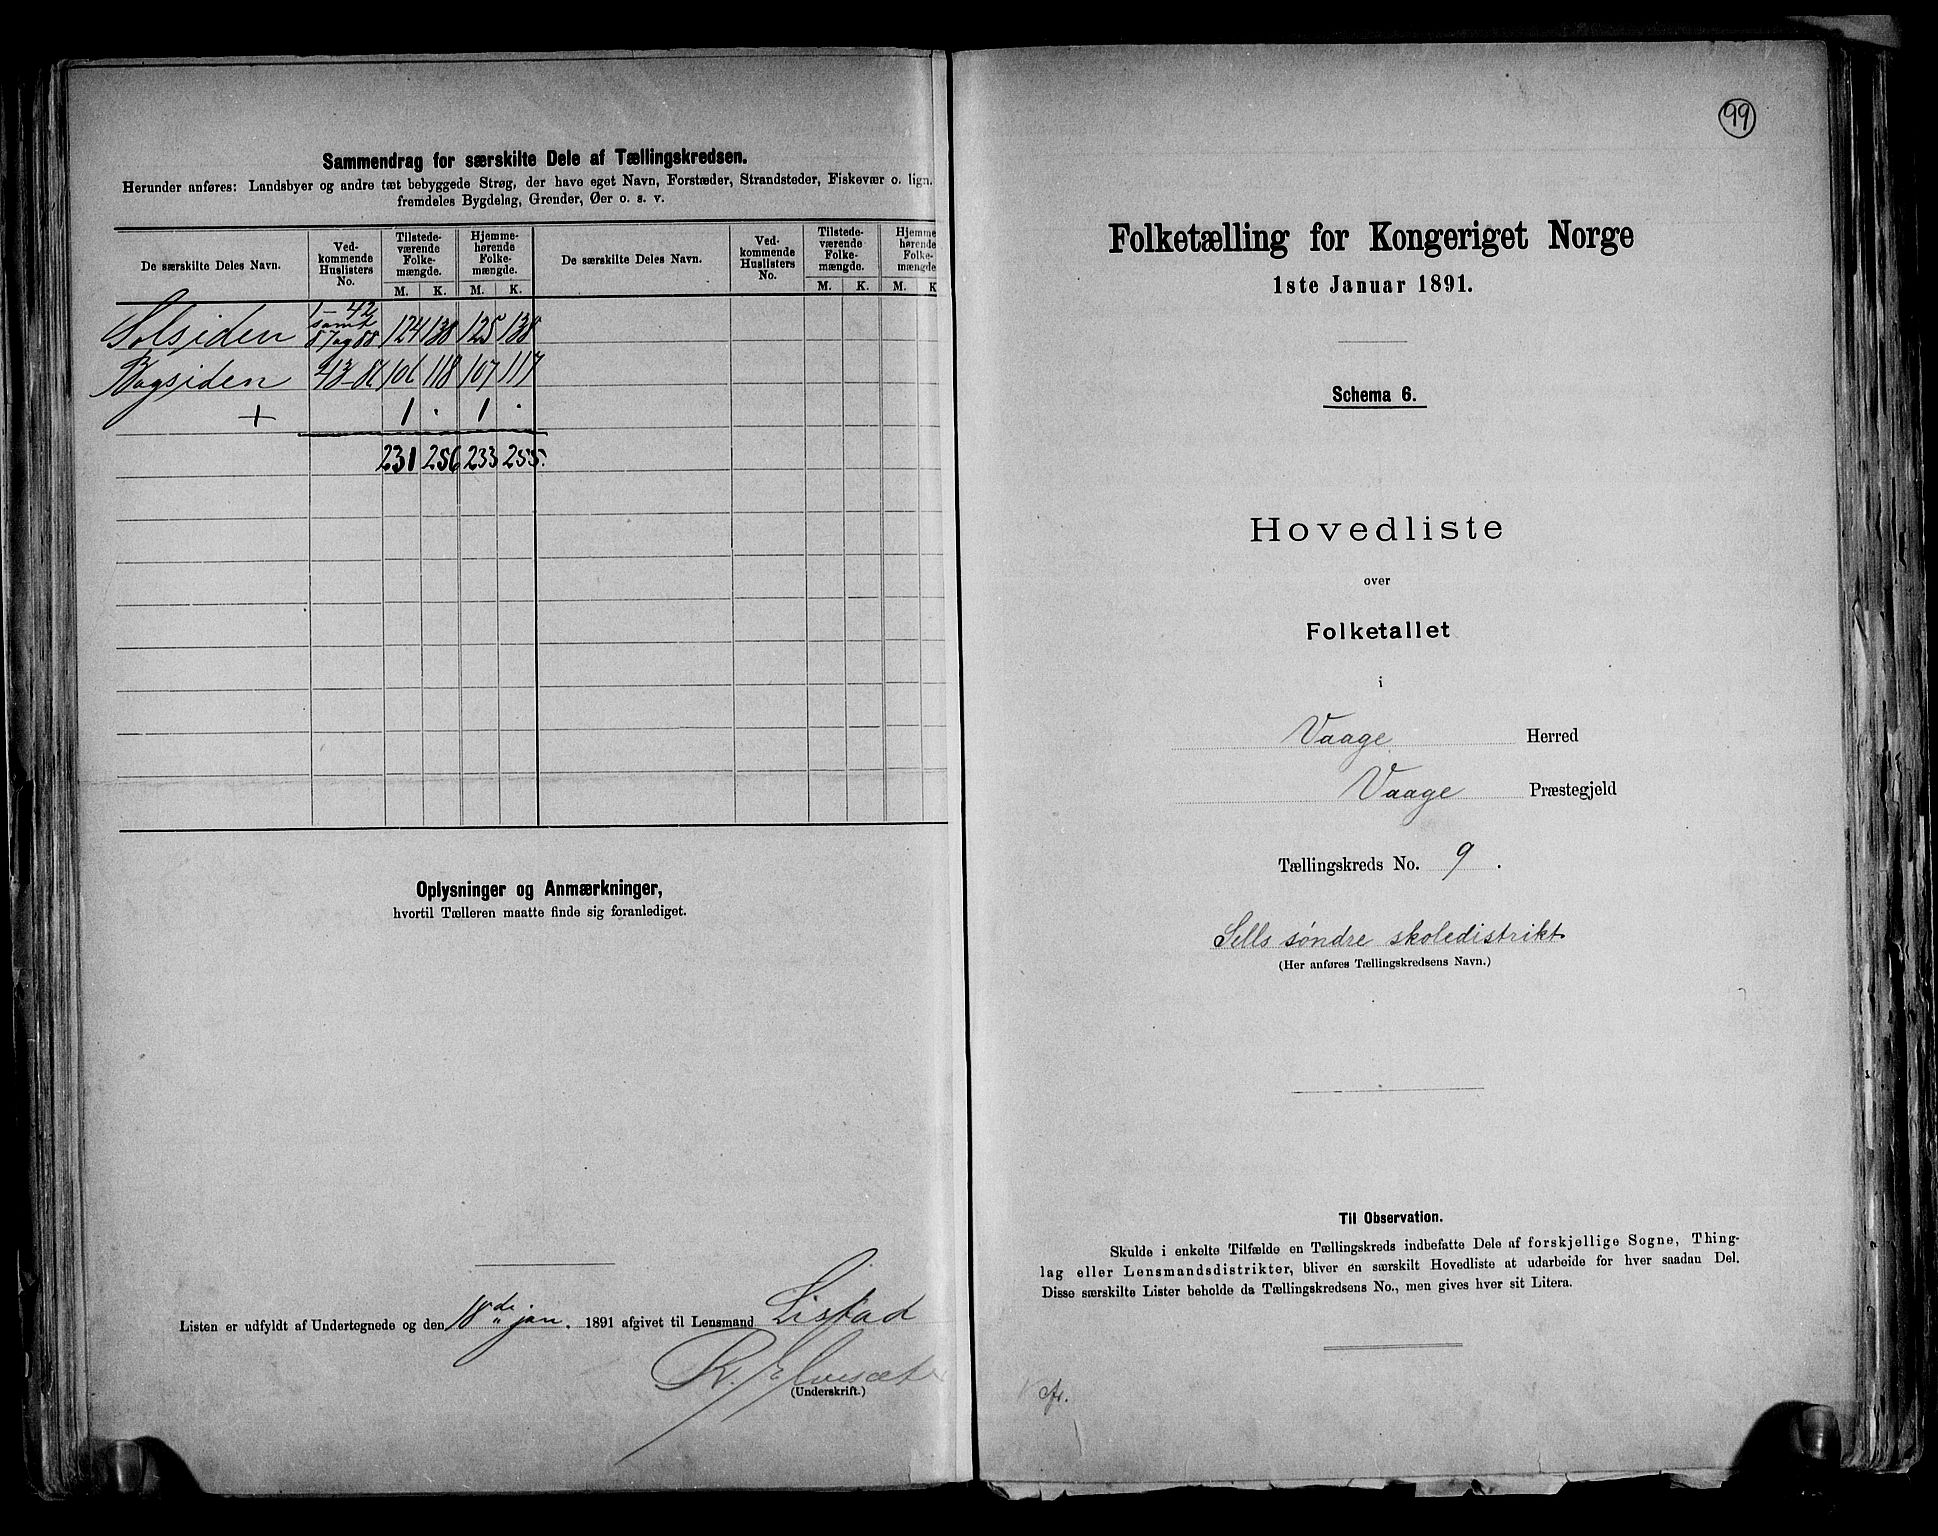 Sammendrag for særskilte Dele af Tællingskredsen.
Herunder anføres: Landsbyer og andre tæt bebyggede Strøg, der have eget Navn, Forstæder, Strandsteder, Fiskevær o. lign.
fremdeles Bygdelag, Grender, Øer o. s. v.
De særskilte Deles Navn.
Ved-
kommende
Huslisters
No.
Tilstede-
værende
Folke-
mængde.
Hjemme-
hørende
Folke-
mængde.
M. K. M. K.
De særskilte Deles Navn.
Ved-
kommende
Huslisters
No.
Tilstede-
værende
Folke-
mængde.
Hjemme-
hørende
Folke-
mængde.
M. K. M. K
1 - 42
samt
Solsiden 87 og 88 124 138 125 138
Bagsiden 43-86 106 118 107 117
+ 1 . 1 .
231 256 233 255.
Oplysninger og Anmærkninger,
hvortil Tælleren maatte finde sig foranlediget.
Listen er udfyldt af Undertegnede og den 18de jan. 1891 afgivet til Lensmand Listad
(Underskrift.)
99
Folketælling for Kongeriget Norge
1ste Januar 1891.
Schema 6.
Hovedliste
over
Folketallet
i
Vaage Herred
Vaage Præstegjeld
Tællingskreds No. 9.
Sells søndre skoledistrikt
(Her anføres Tællingskredsens Navn.)
Til Observation.
Skulde i enkelte Tilfælde en Tællingskreds indbefatte Dele af forskjellige Sogne, Thing-
lag eller Lensmandsdistrikter, bliver én særskilt Hovedliste at udarbeide for hver saadan Del.
Disse særskilte Lister beholde da Tællingskredsens No., men gives hver sit Litera.